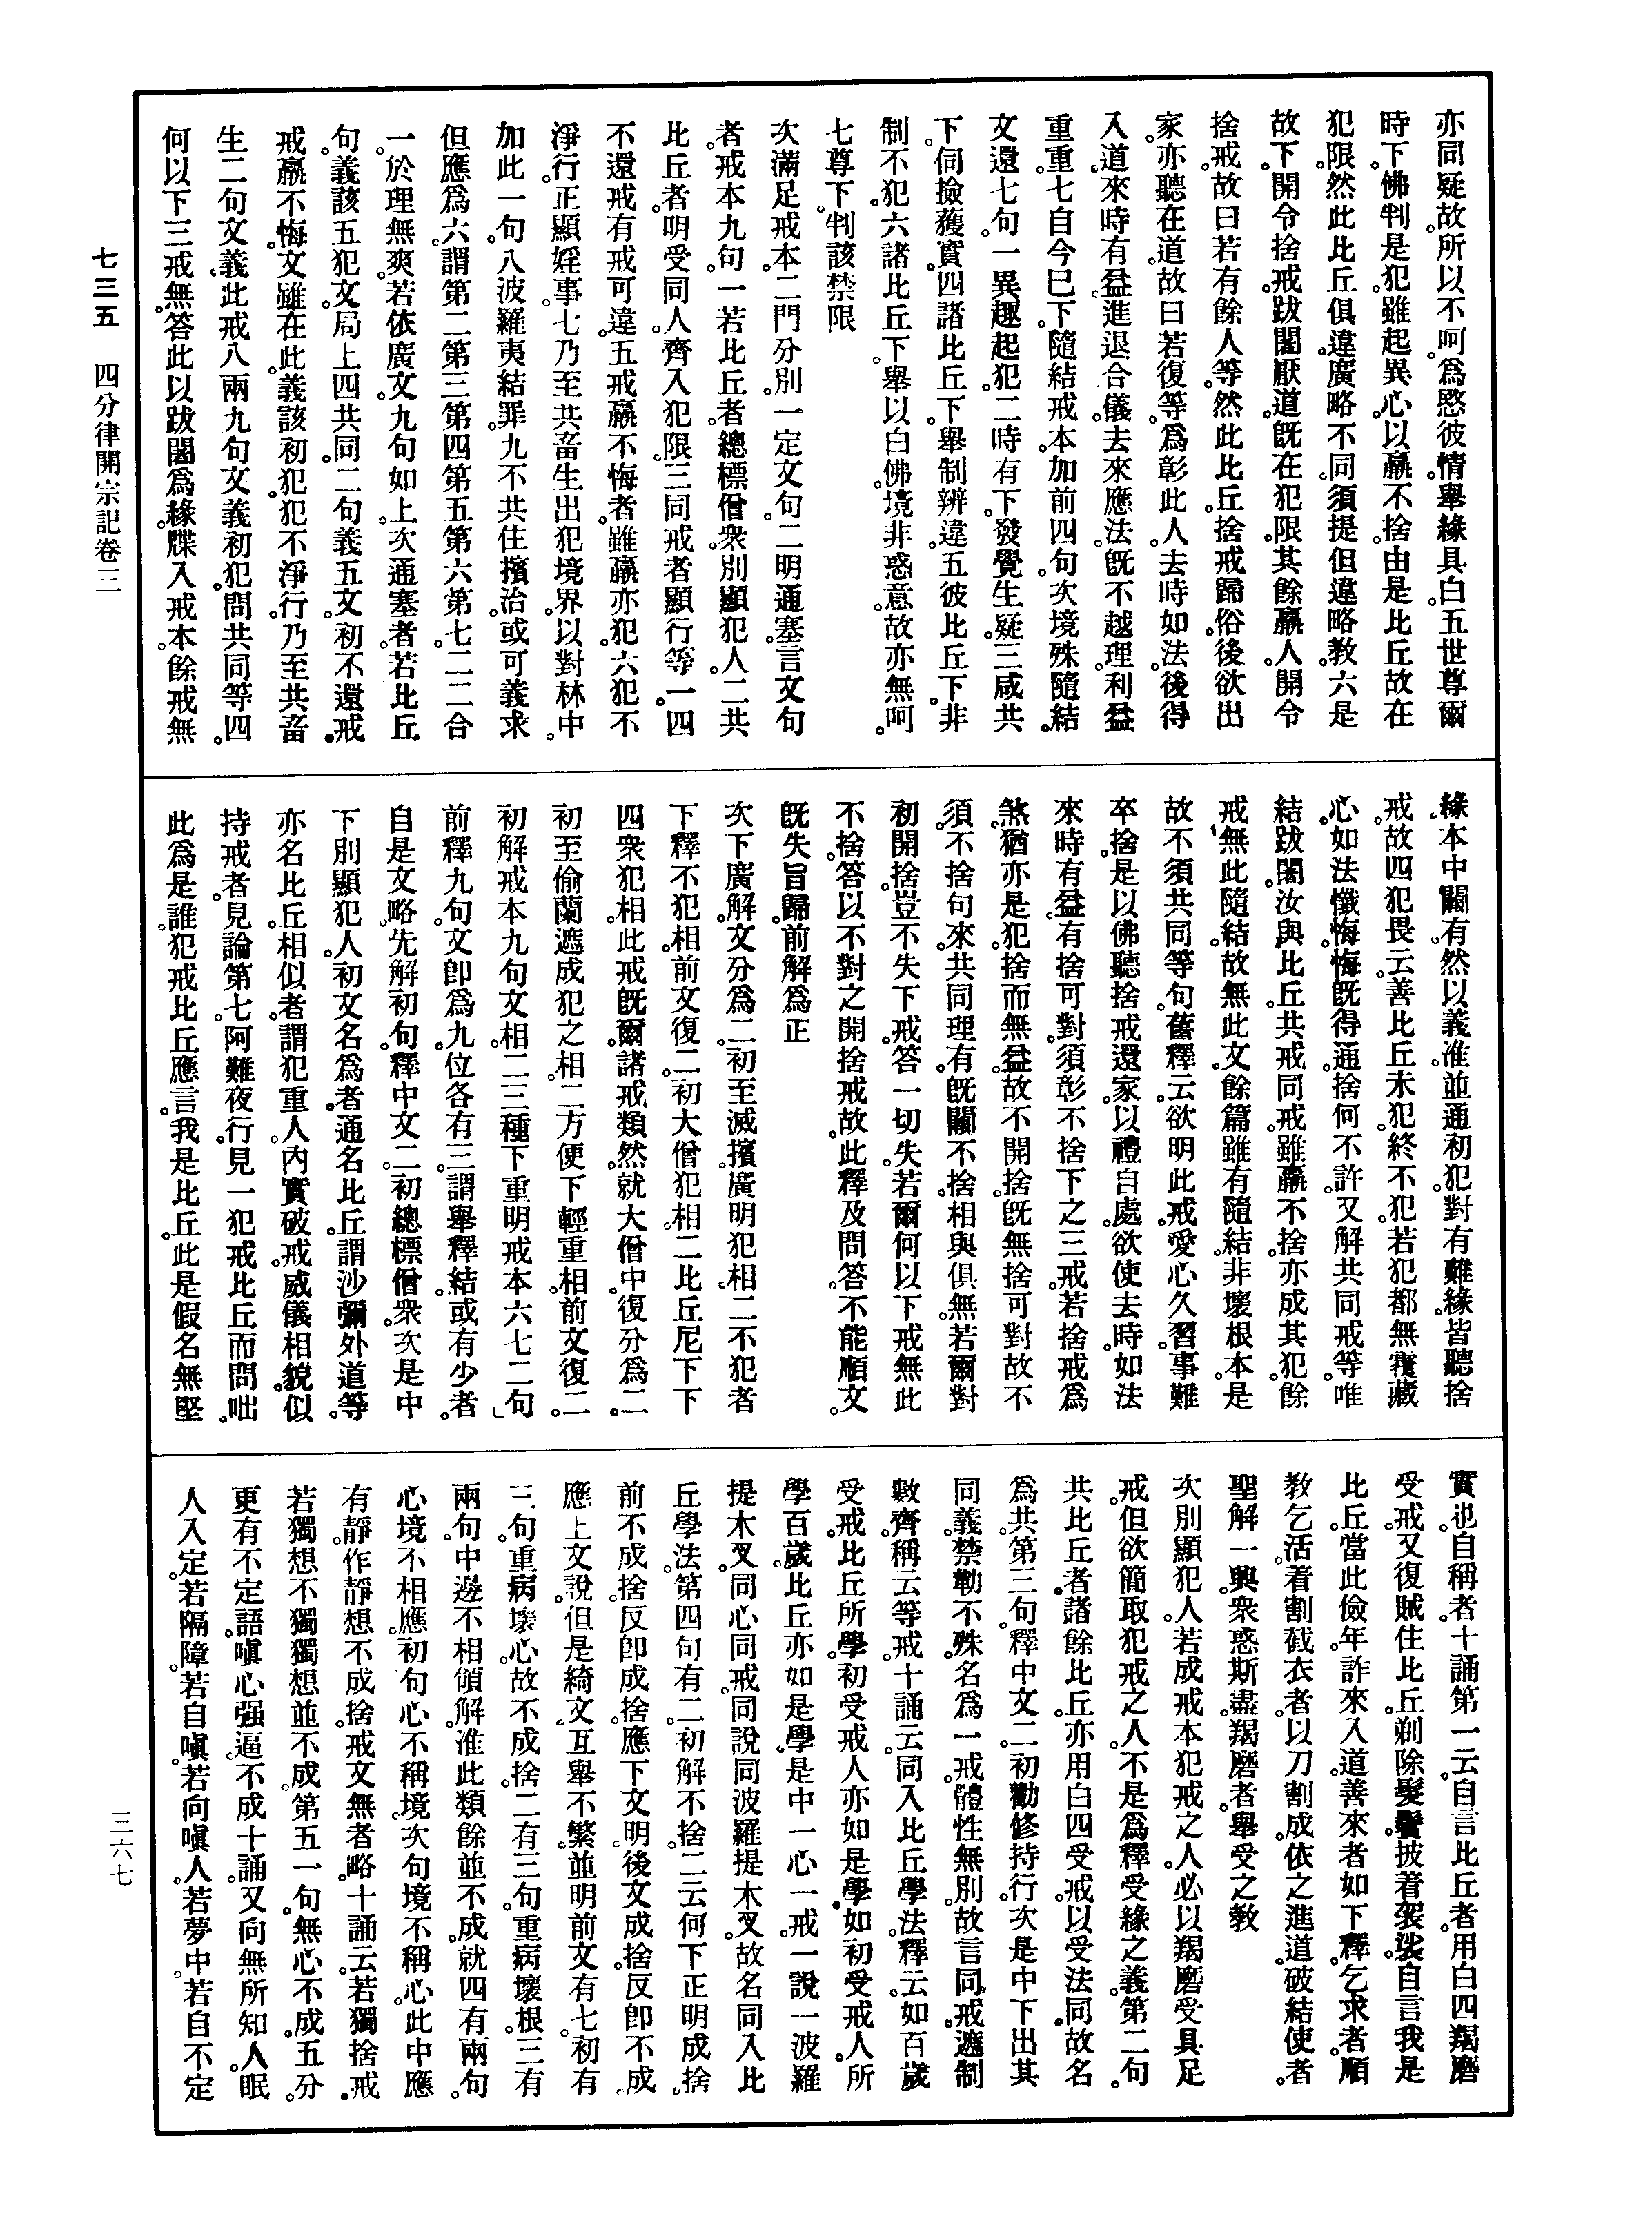 亦同疑故。所以不呵。爲愍彼情。舉緣具白。五世尊爾
時下。佛判是犯。雖起異心。以羸不捨。由是比丘故在
犯限。然此比丘俱違。廣略不同。須提但違略教。六是
故下。開令捨戒。跋闍厭道。旣在犯限。其餘羸人。開令
捨戒。故曰若有餘人等。然此比丘。捨戒歸俗。後欲出
家。亦聽在道。故曰若復等。爲彰此人。去時如法。後得
入道。來時有益。進退合儀。去來應法。旣不越理。利益
重重。七自今已下。隨結戒本。加前四句。次境殊隨結。
文還七句。一異趣起犯。二時有下。發覺生疑。三咸共
下。伺撿獲實。四諸比丘下。舉制辨違。五彼比丘下。非
制不犯。六諸比丘下。舉以白佛。境非惑意。故亦無呵。
七尊下。判該禁限
次滿足戒本。二門分別。一定文句。二明通塞。言文句
者。戒本九句。一若比丘者。總標僧衆。別顯犯人。二共
比丘者。明受同人。齊入犯限。三同戒者。顯行等一。四
不還戒。有戒可違。五戒羸不悔者。雖羸亦犯。六犯不
淨行。正顯婬事。七乃至共畜生。出犯境界。以對林中。
加此一句。八波羅夷。結罪。九不共住。擯治。或可義求。
但應爲六。謂第二第三第四第五第六第七。二二合
一。於理無爽。若依廣文。九句如上。次通塞者。若比丘
句。義該五犯。文局上四。共同二句。義五文。初不還戒。
戒羸不悔。文雖在此。義該初犯。犯不淨行。乃至共畜
生。二句文義。此戒八兩九句。文義初犯。問共同等四。
何以下三戒無。答此以跋闍爲緣。牒入戒本。餘戒無
緣。本中闕有。然以義准。並通初犯。對有難緣。皆聽捨
戒。故四犯畏云。善比丘未犯。終不犯。若犯都無覆藏
心。如法懺悔。悔旣得通。捨何不許。又解共同戒等。唯
結跋闍。汝與比丘。共戒同戒。雖羸不捨。亦成其犯。餘
戒無此隨結。故無此文。餘篇雖有隨結。非壞根本。是
故不須共同等句。舊釋云。欲明此戒。愛心久習。事難
卒捨。是以佛聽捨戒還家。以禮自處。欲使去時如法
來時有益。有捨可對。須彰不捨。下之三戒。若捨戒爲
煞。猶亦是犯。捨而無益。故不開捨。旣無捨可對。故不
須不捨句來。共同理有。旣闕不捨。相與俱無。若爾對
初開捨。豈不失下戒。答一切失。若爾何以下戒無此
不捨。答以不對之開捨戒故。此釋及問答。不能順文。
旣失旨歸。前解爲正
次下廣解。文分爲二。初至滅擯。廣明犯相。二不犯者
下。釋不犯相。前文復二。初大僧犯相。二比丘尼下。下
四衆犯相。此戒旣爾。諸戒類然。就大僧中。復分爲二。
初至偷蘭遮成犯之相。二方便下輕重相。前文復二。
初解戒本九句文相。二三種下。重明戒本六七二句。
前釋九句。文卽爲九。位各有三。謂舉釋結。或有少者。
自是文略。先解初句。釋中文二。初總標僧衆。次是中
下。別顯犯人。初文名爲者。通名比丘。謂沙彌外道等。
亦名比丘。相似者。謂犯重人。內實破戒。威儀相貌。似
持戒者。見論第七。阿難夜行。見一犯戒比丘而問。咄
此爲是誰。犯戒比丘應言。我是比丘。此是假名無堅
實也。自稱者。十誦第一云。自言比丘者。用白四羯磨
受戒。又復賊住比丘。剃除髮鬢。披着袈裟。自言我是
比丘。當此儉年。詐來入道。善來者。如下釋。乞求者。順
教乞活。着割截衣者。以刀割成。依之進道。破結使者。
聖解一興。衆惑斯盡。羯磨者。舉受之教
次別顯犯人。若成戒本犯戒之人。必以羯磨受具足
戒。但欲簡取犯戒之人。不是爲釋受緣之義。第二句。
共比丘者。諸餘比丘。亦用白四受戒。以受法同。故名
爲共。第三句。釋中文二。初勸修持行。次是中下。出其
同義。禁勒不殊。名爲一戒。體性無別。故言同戒。遮制
數齊。稱云等戒。十誦云。同入比丘學法。釋云。如百歲
受戒。比丘所學。初受戒人。亦如是學。如初受戒人所
學。百歲比丘。亦如是學。是中一心一戒一說一波羅
提木叉。同心同戒同說同波羅提木叉。故名同入比
丘學法。第四句有二。初解不捨。二云何下。正明成捨。
前不成捨。反卽成捨。應下文明。後文成捨。反卽不成。
應上文說。但是綺文。互舉不繁。並明前文有七。初有
三句。重病壞心。故不成捨。二有三句。重病壞根。三有
兩句。中邊不相領解。准此類餘。並不成。就四有兩句。
心境不相應。初句心不稱境。次句境不稱心。此中應
有靜作靜想。不成捨戒。文無者略。十誦云。若獨捨戒。
若獨想不獨。獨想並不成。第五一句。無心不成。五分。
更有不定語。嗔心强逼不成。十誦。又向無所知人。眠
人入定。若隔障。若自嗔。若向嗔人。若夢中。若自不定
七三五　四分律開宗記卷三
三六七